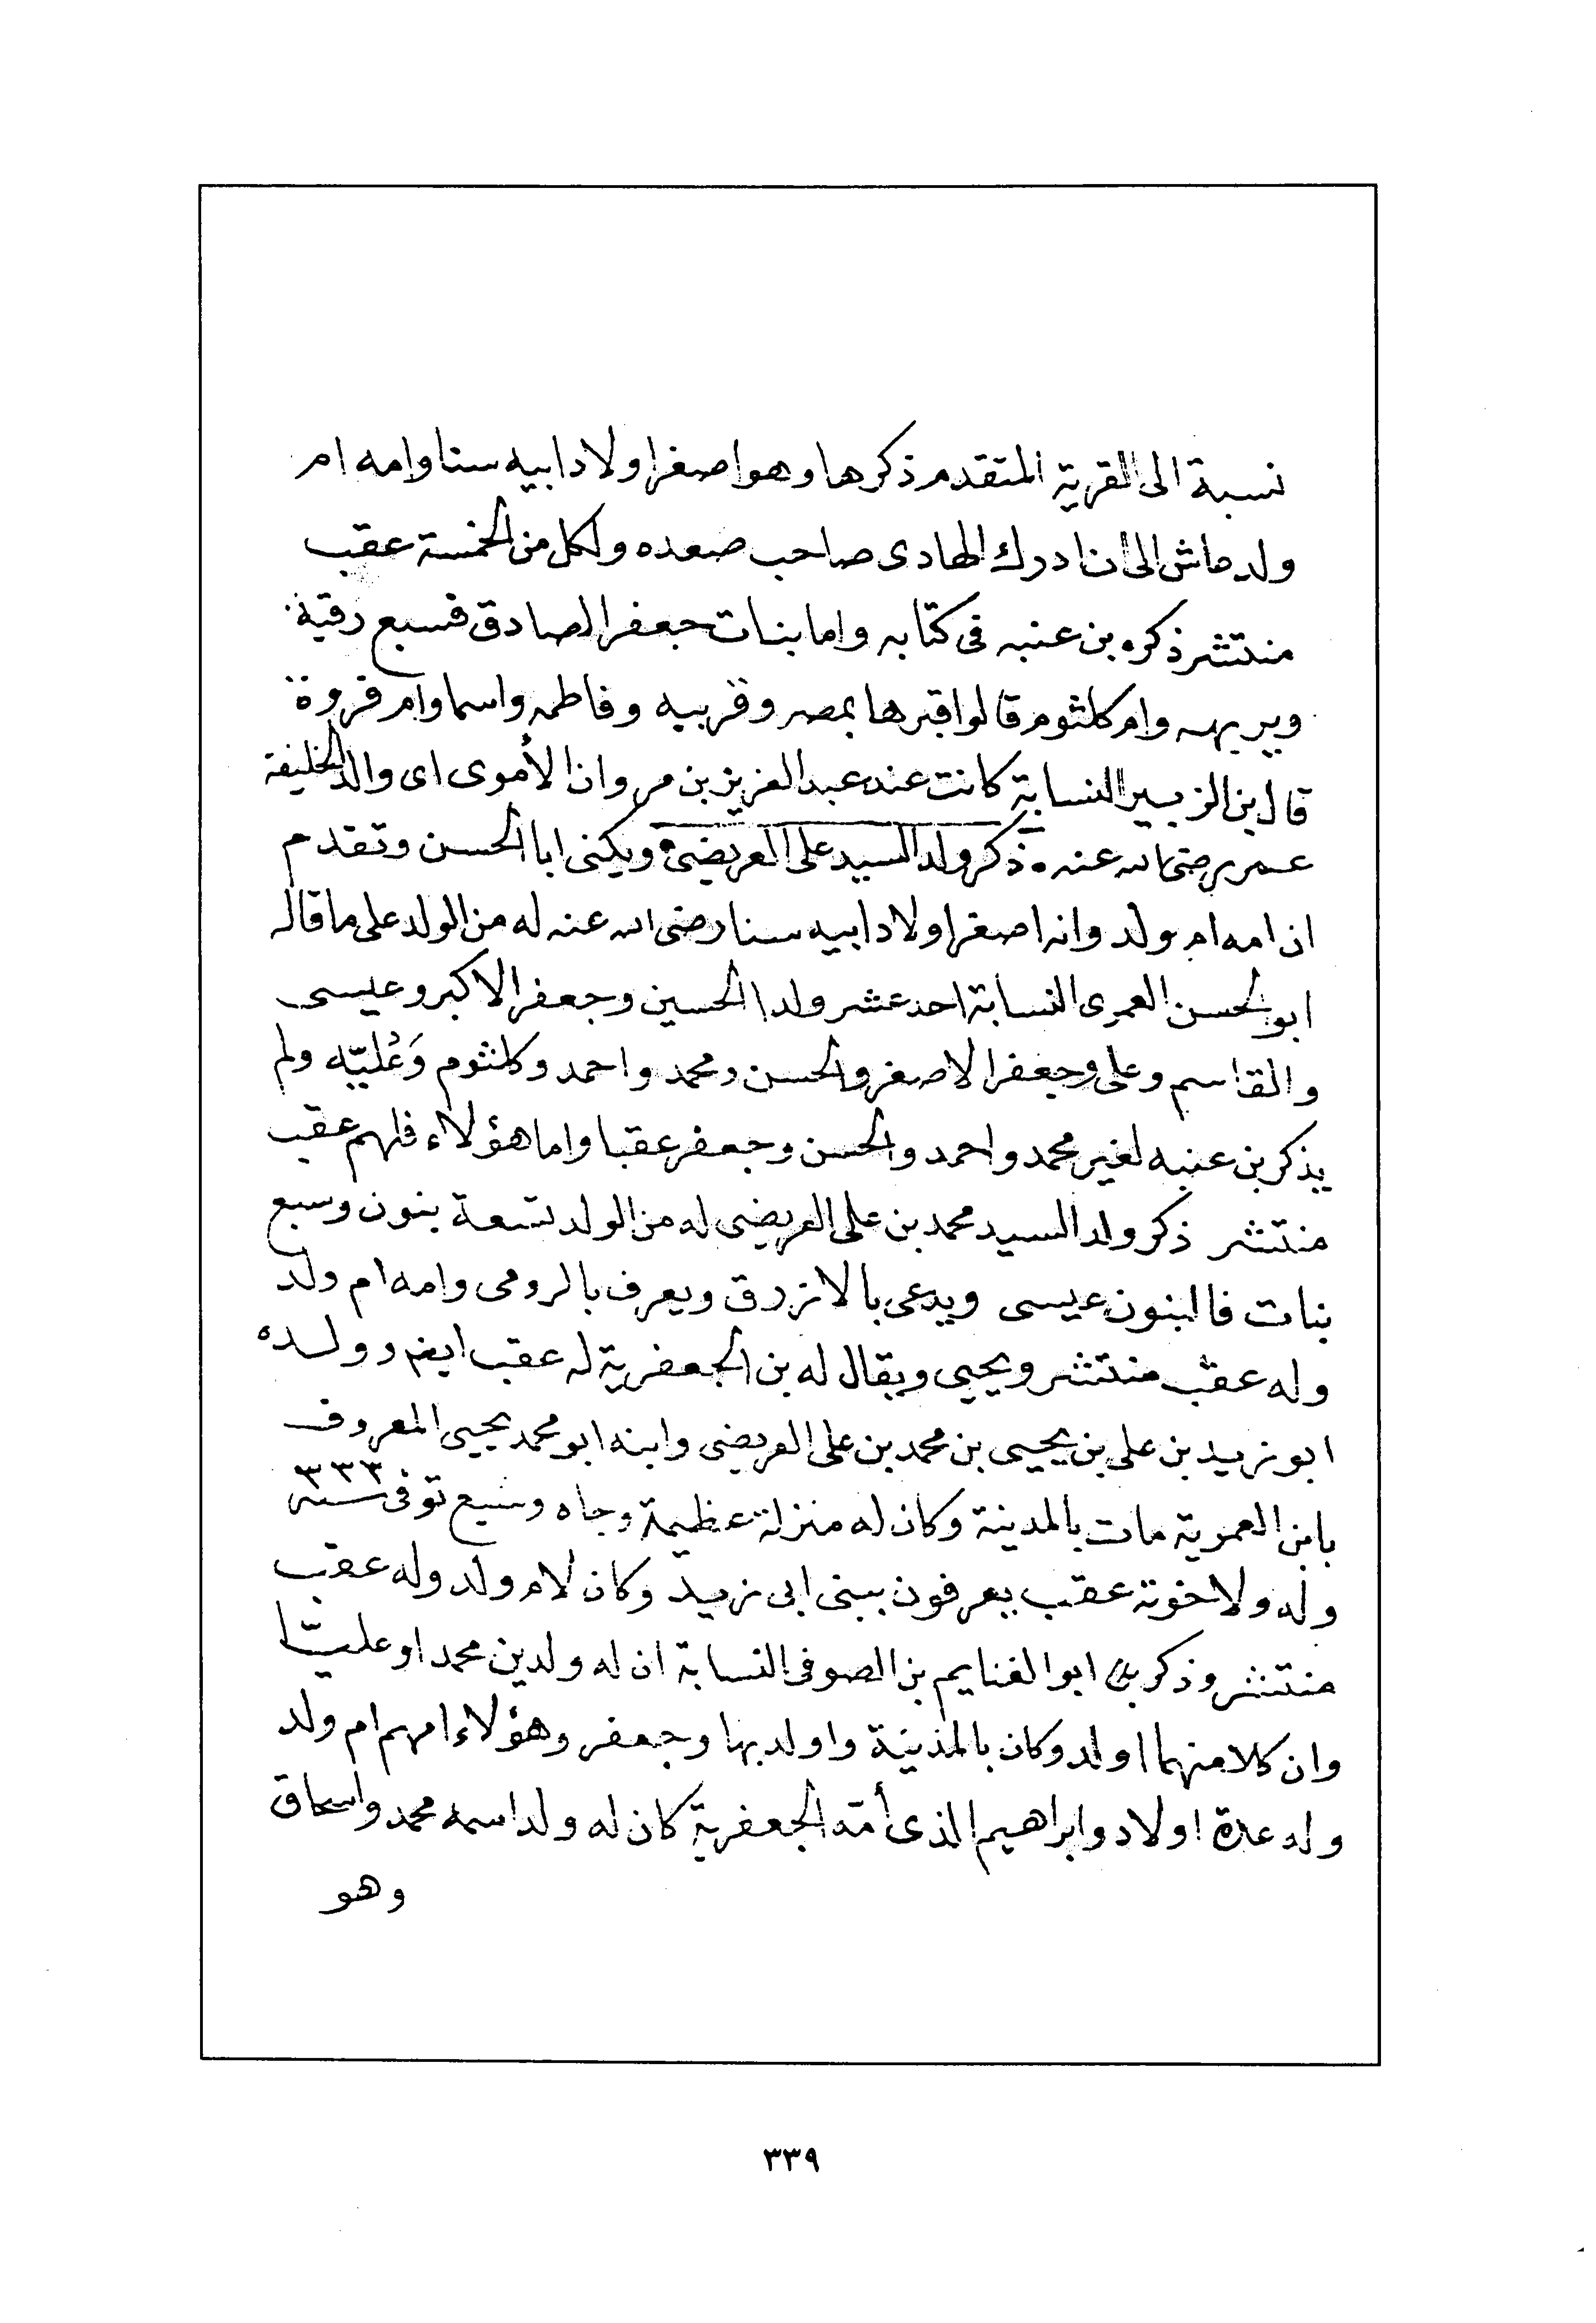 نسبة الى القرية المتقدم ذكرها وهو اصغر اولاد ابيه سنا وامه ام
ولد عاش الى ان ادرك الهادى صاحب صعده ولكل من الخمسة عقب
منتشر ذكره بن عنبه فى كتابه واما بنات جعفر الصادق فسبع رقية
وبريهه وام كلثوم قالوا قبرها بمصر وقريبه وفاطمه واسما وام فروة
قال بن الزبير النسابة كانت عند عبد العزيز بن مروان الأموى اى والد الخليفة
عمر رضى الله عنه ذكر ولد السيد على العريضى ويكنى ابا الحسن وتقدم
ان امه ام ولد وانه اصغر اولاد ابيه سنا رضى الله عنه له من الولد على ما قاله
ابو الحسن العمرى النسابة احد عشر ولدا الحسين وجعفر الاكبر وعيسى
والقاسم وعلى وجعفر الاصغر والحسن ومحمد واحمد وكلثوم وَعُليّه ولم
يذكر بن عنبه لغير محمد واحمد والحسن وجعفر عقبا واما هؤلاء فلهم عقب
منتشر ذكر ولد السيد محمد بن على العريضى له من الولد تسعة بنون وسبع
بنات فالبنون عيسى ويدعى بالازرق ويعرف بالرومى وامه ام ولد
وله عقب منتشر ويحيى ويقال له بن الجعفرية له عقب ايضم وولده
ابو زيد بن على بن يحيى بن محمد بن على العريضى وابنه ابو محمد يحيى المعروف
بابن العمرية مات بالمدينة وكان له منزلة عظيمة وجاه وسيع توفى سنة ٣٣٣
وله ولاخوته عقب يعرفون ببنى ابى زيد وكان لام ولد وله عقب
منتشر وذكر ابو الغنايم بن الصوفى النسابة ان له ولدين محمد او عليّا
وان كلا منهما اولد وكان بالمدينة واولد بها وجعفر وهؤلاء امهم ام ولد
وله عدة اولاد وابراهيم الذى أمّه الجعفرية كان له ولد اسمه محمد واسحاق
وهو
٣٣٩